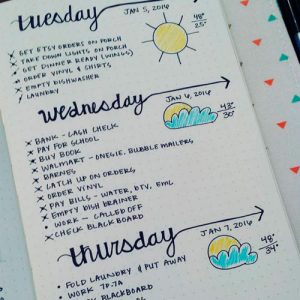 tuesday
JAN 5, 2016
48°
25°
GET ETSY ORDERS ON PORCH
TAKE DOWN LIGHTS ON PORCH
GET DINNER READY (WINGS)
ORDER VINYL & SHIRTS
EMPTY DISHWASHER
LAUNDRY
wednesday
JAN 6, 2016
43°
30°
BANK - CASH CHECK
PAY FOR SCHOOL
BUY BOOK
WALMART - ONESIE, BUBBLE MAILERS
BARNES
CATCH UP ON ORDERS
ORDER VINYL
PAY BILLS - WATER, BTV, EML
EMPTY DISH DRAINER
WORK - CALLED OFF
CHECK BLACKBOARD
thursday
JAN 7, 2016
48°
34°
FOLD LAUNDRY & PUT AWAY
WORK 7P-7A
BLACKBOARD